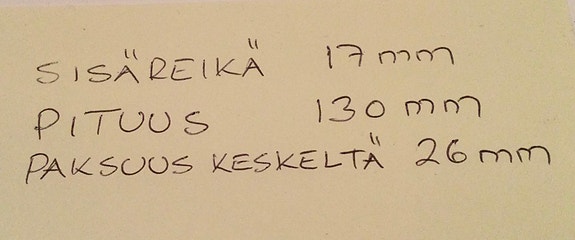 SISÄREIKÄ 17mm
PITUUS 130mm
PAKSUUS KESKELTÄ 26mm